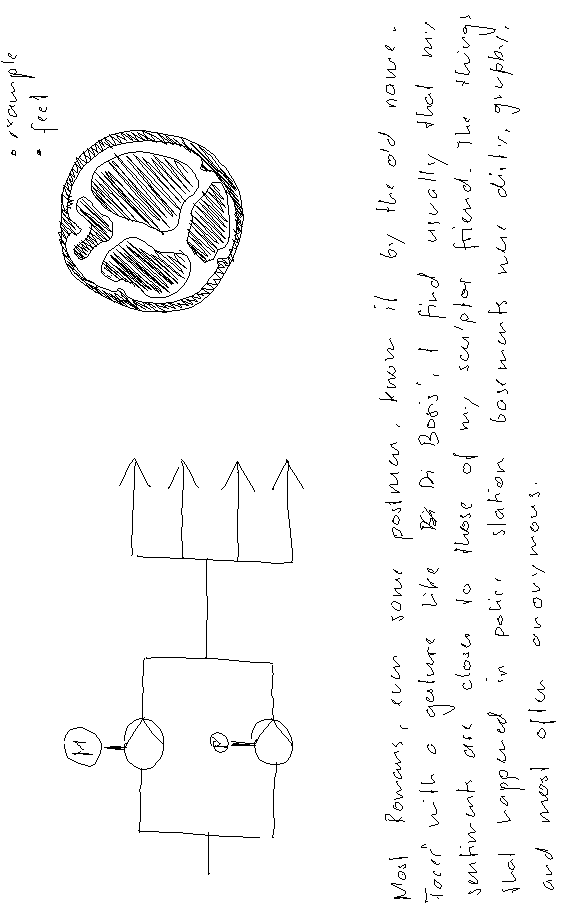 • example
• feet
M
P
Most Romans, even some postmen, know it by the old name.
Faced with a gesture like Di Bosis', I find usually that my
sentiments are closer to those of my sculptor friend. The things
that happened in police station basements were dirty, grubby,
and most often anonymous.